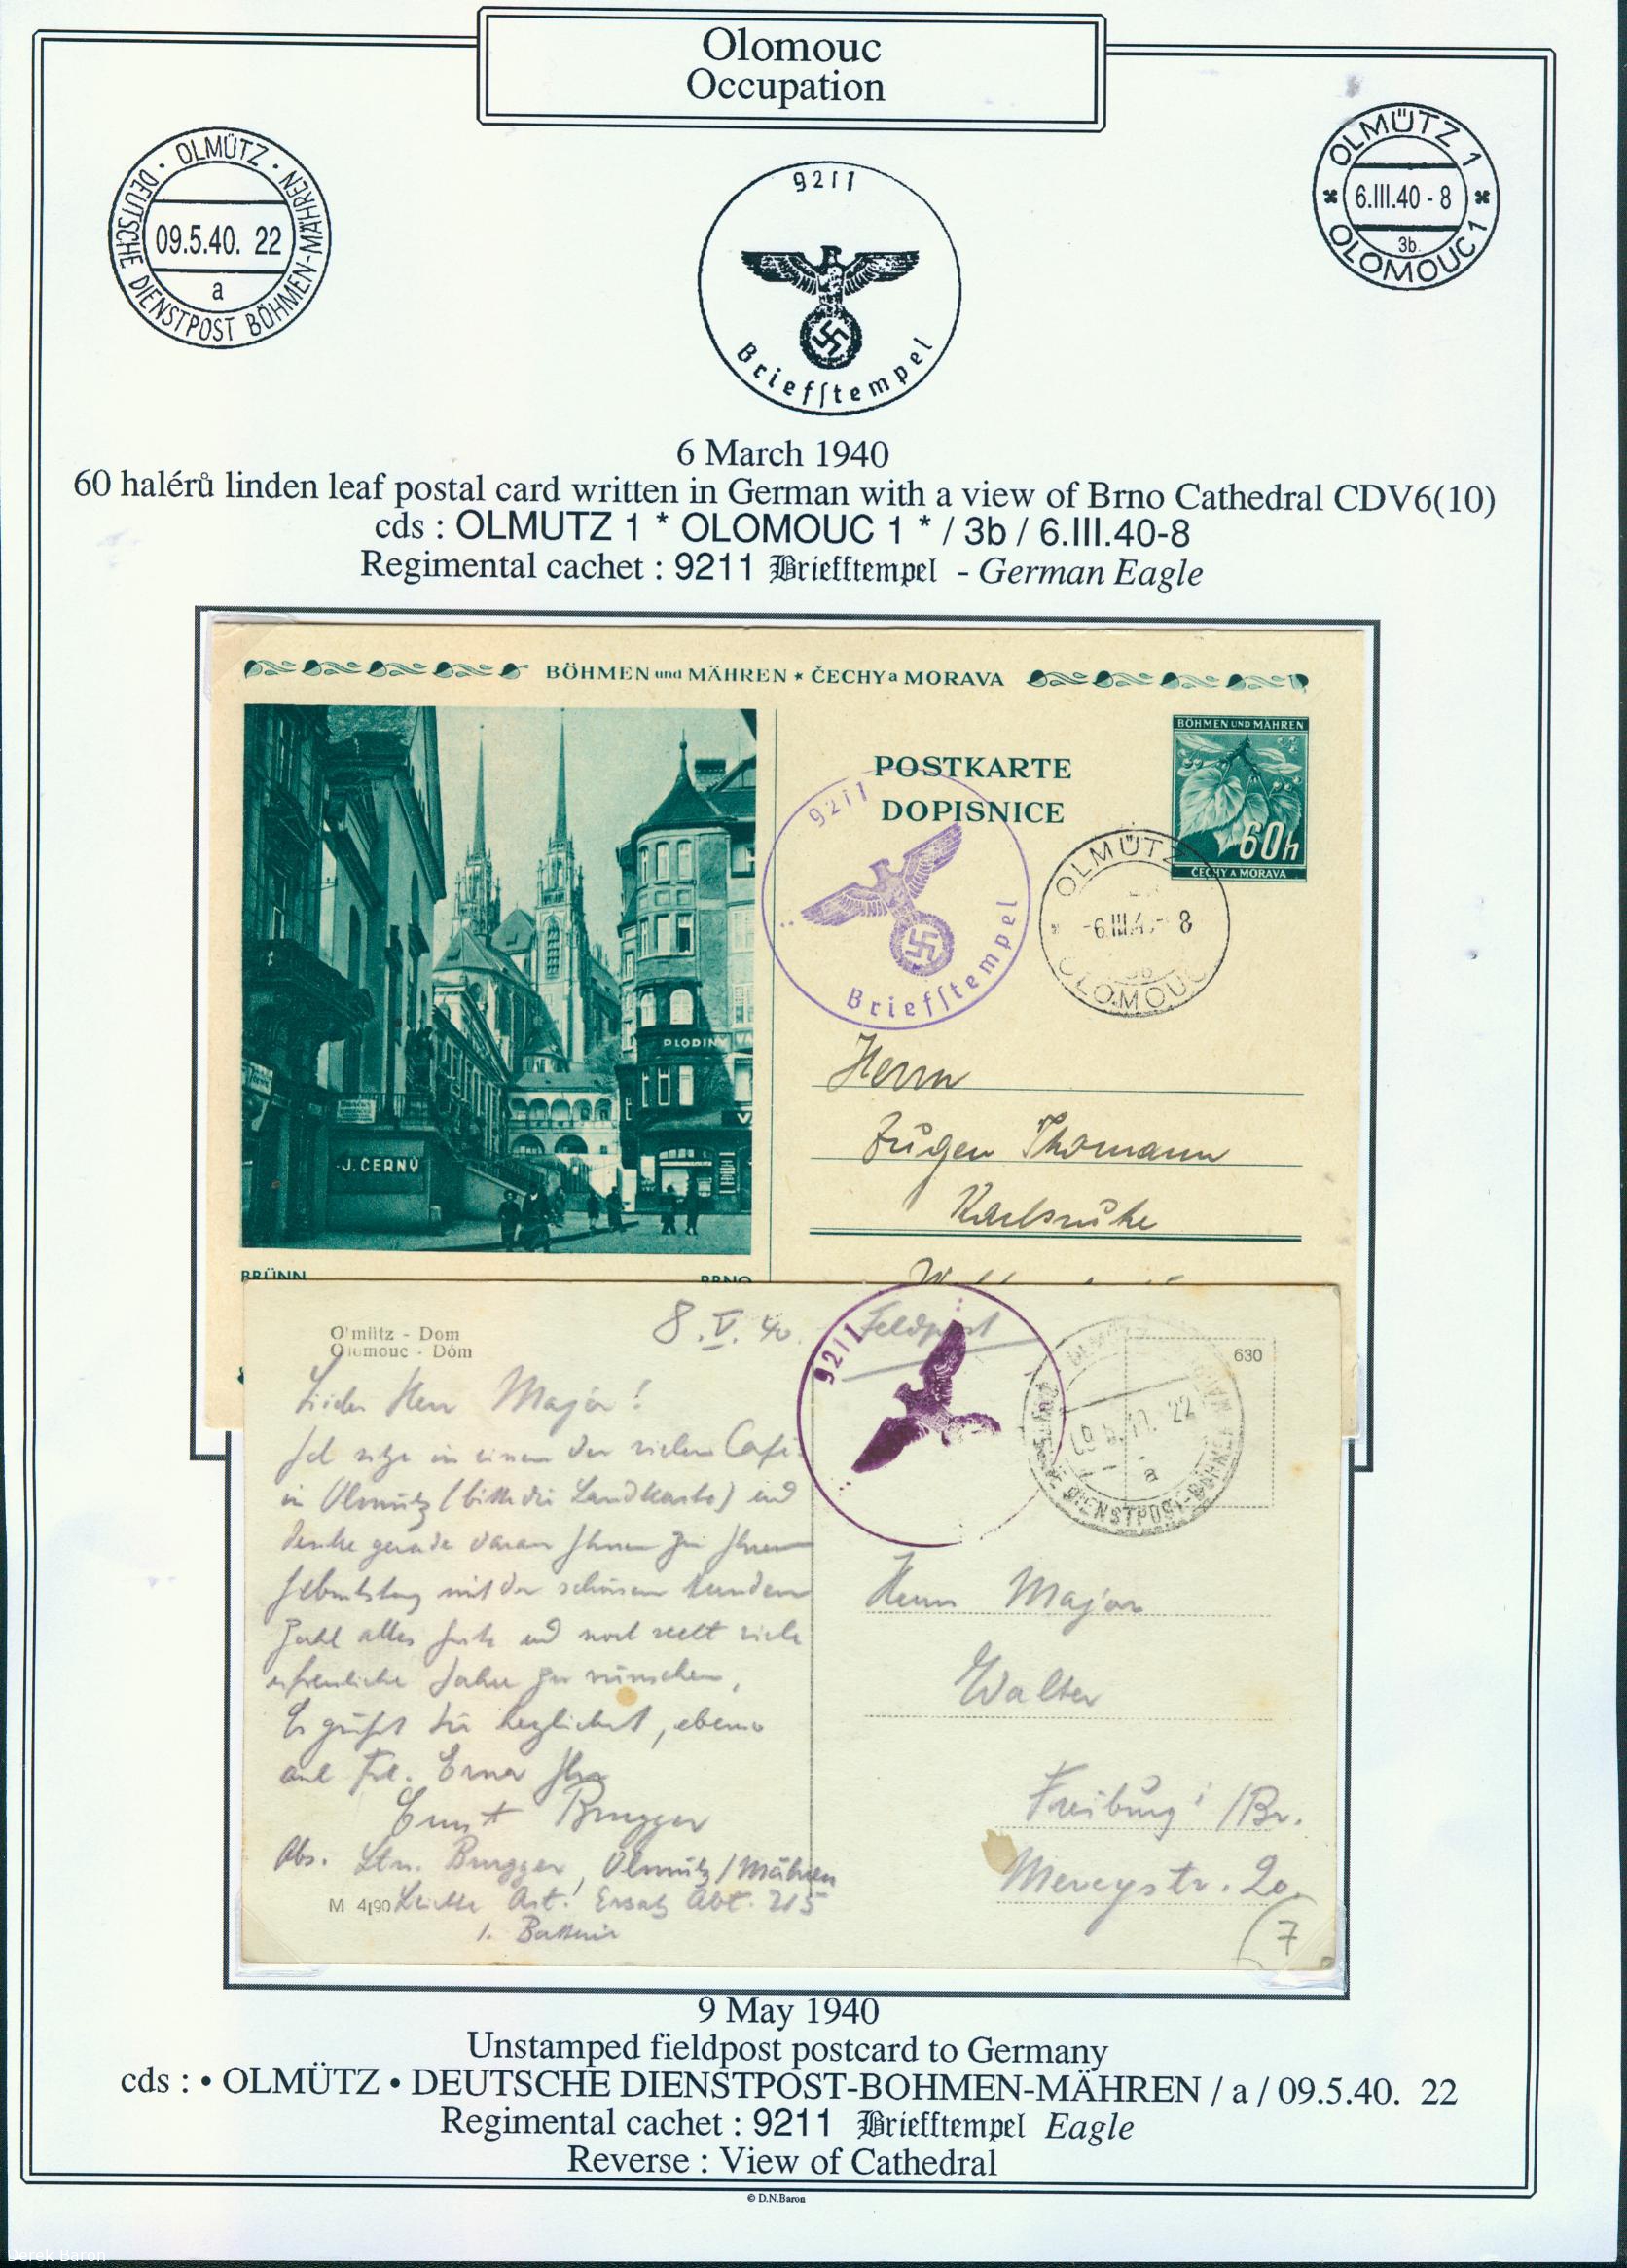 Olomouc
Occupation
• OLMÜTZ •
DEUTSCHE DIENSTPOST BÖHMEN-MÄHREN
09.5.40. 22
a
9211
Briefſtempel
OLMÜTZ 1
6.III.40 - 8
3b
OLOMOUC 1
6 March 1940
60 halérů linden leaf postal card written in German with a view of Brno Cathedral CDV6(10)
cds : OLMUTZ 1 * OLOMOUC 1 * / 3b / 6.III.40-8
Regimental cachet : 9211 Briefftempel - German Eagle
BÖHMEN und MÄHREN ★ ČECHY a MORAVA
POSTKARTE
DOPISNICE
BÖHMEN UND MÄHREN
60h
ČECHY A MORAVA
9211
Briefſtempel
OLMÜTZ
-6.III.4 - 8
OLOMOUC
PLODINY
J. ČERNÝ
Herrn
Eugen Thomann
Karlsruhe
BRÜNN
BRNO
Olmütz - Dom
Olomouc - Dóm
8.V.40.
Feldpost
9211
630
22
a
DIENSTPOST-BÖHMEN
Lieber Herr Major!
Ich sitze in einem der vielen Cafés
in Olmütz (bitte die Landkarte) und
denke gerade daran Ihnen zu Ihrem
Geburtstag mit der schönen runden
Zahl alles Gute und noch recht viele
erfreuliche Jahre zu wünschen.
Es grüßt Sie herzlichst, ebenso
auch Frl. Erna Ihr
Ernst Brugger
Abs. Ltn. Brugger, Olmütz/Mähren
M 4190 Leichte Art. Ersatz Abt. 215
1. Batterie
Herrn Major
Walter
Freiburg i/Br.
Mercystr. 20
7
9 May 1940
Unstamped fieldpost postcard to Germany
cds : • OLMÜTZ • DEUTSCHE DIENSTPOST-BOHMEN-MÄHREN / a / 09.5.40. 22
Regimental cachet : 9211 Briefftempel Eagle
Reverse : View of Cathedral
© D.N.Baron
Derek Baron